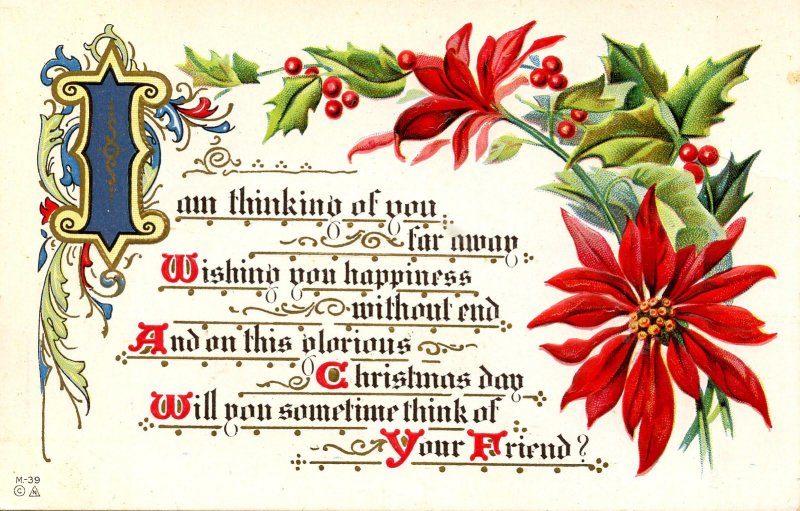 I am thinking of you
far away
Wishing you happiness
without end
And on this glorious
Christmas day
Will you sometime think of
Your Friend?
M.-39
© N